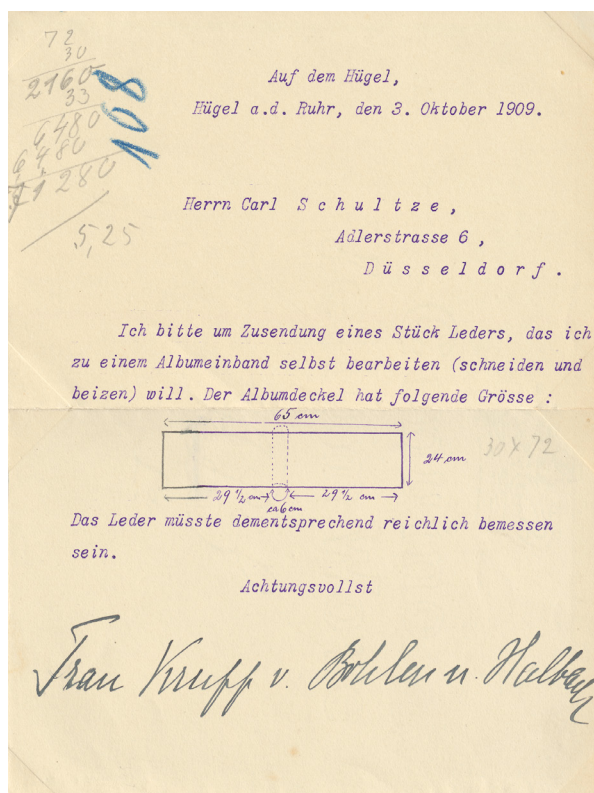 72
30
2160
33
6480
6480
71280
5,25
108
Auf dem Hügel,
Hügel a.d. Ruhr, den 3. Oktober 1909.
Herrn Carl Schultze,
Adlerstrasse 6,
Düsseldorf.
Ich bitte um Zusendung eines Stück Leders, das ich
zu einem Albumeinband selbst bearbeiten (schneiden und
beizen) will. Der Albumdeckel hat folgende Grösse:
65 cm
24 cm
30 x 72
29 1/2 cm
29 1/2 cm
ca 6 cm
Das Leder müsste dementsprechend reichlich bemessen
sein.
Achtungsvollst
Frau Krupp v. Bohlen u. Halbach